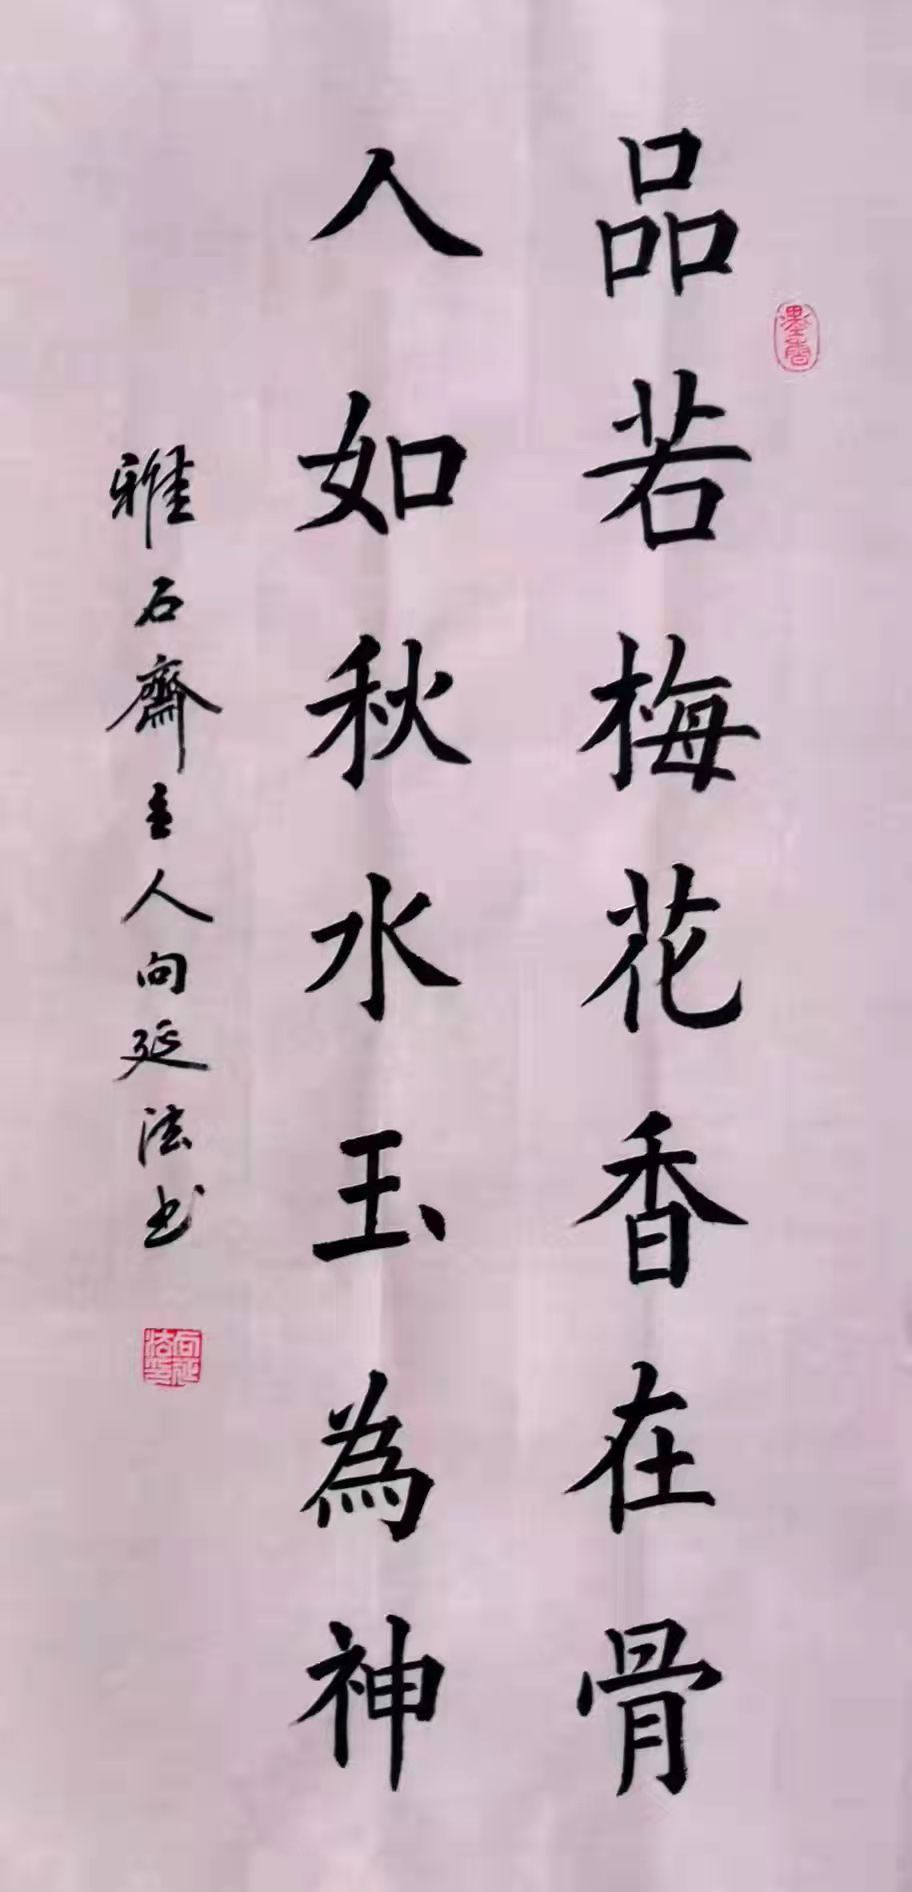 品若梅花香在骨
人如秋水玉為神
雅石齋主人向延法书
墨香
向延法印